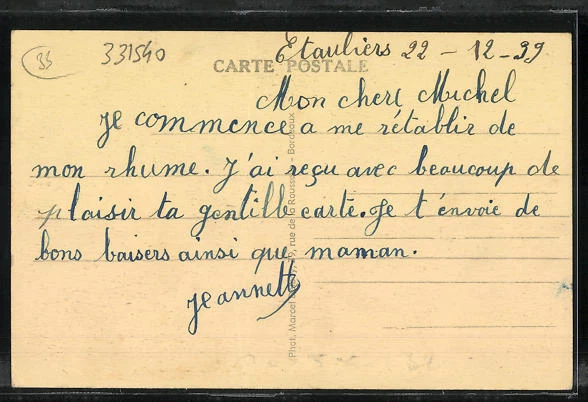 33 331540 Etauliers 22 - 12 - 39
CARTE POSTALE
Mon cher Michel
Je commence a me rétablir de
mon rhume. J'ai reçu avec beaucoup de
plaisir ta gentille carte. Je t'envoie de
bons baisers ainsi que maman.
Jeannette
Phot. Marcel 9, rue de la Rousselle - Bordeaux